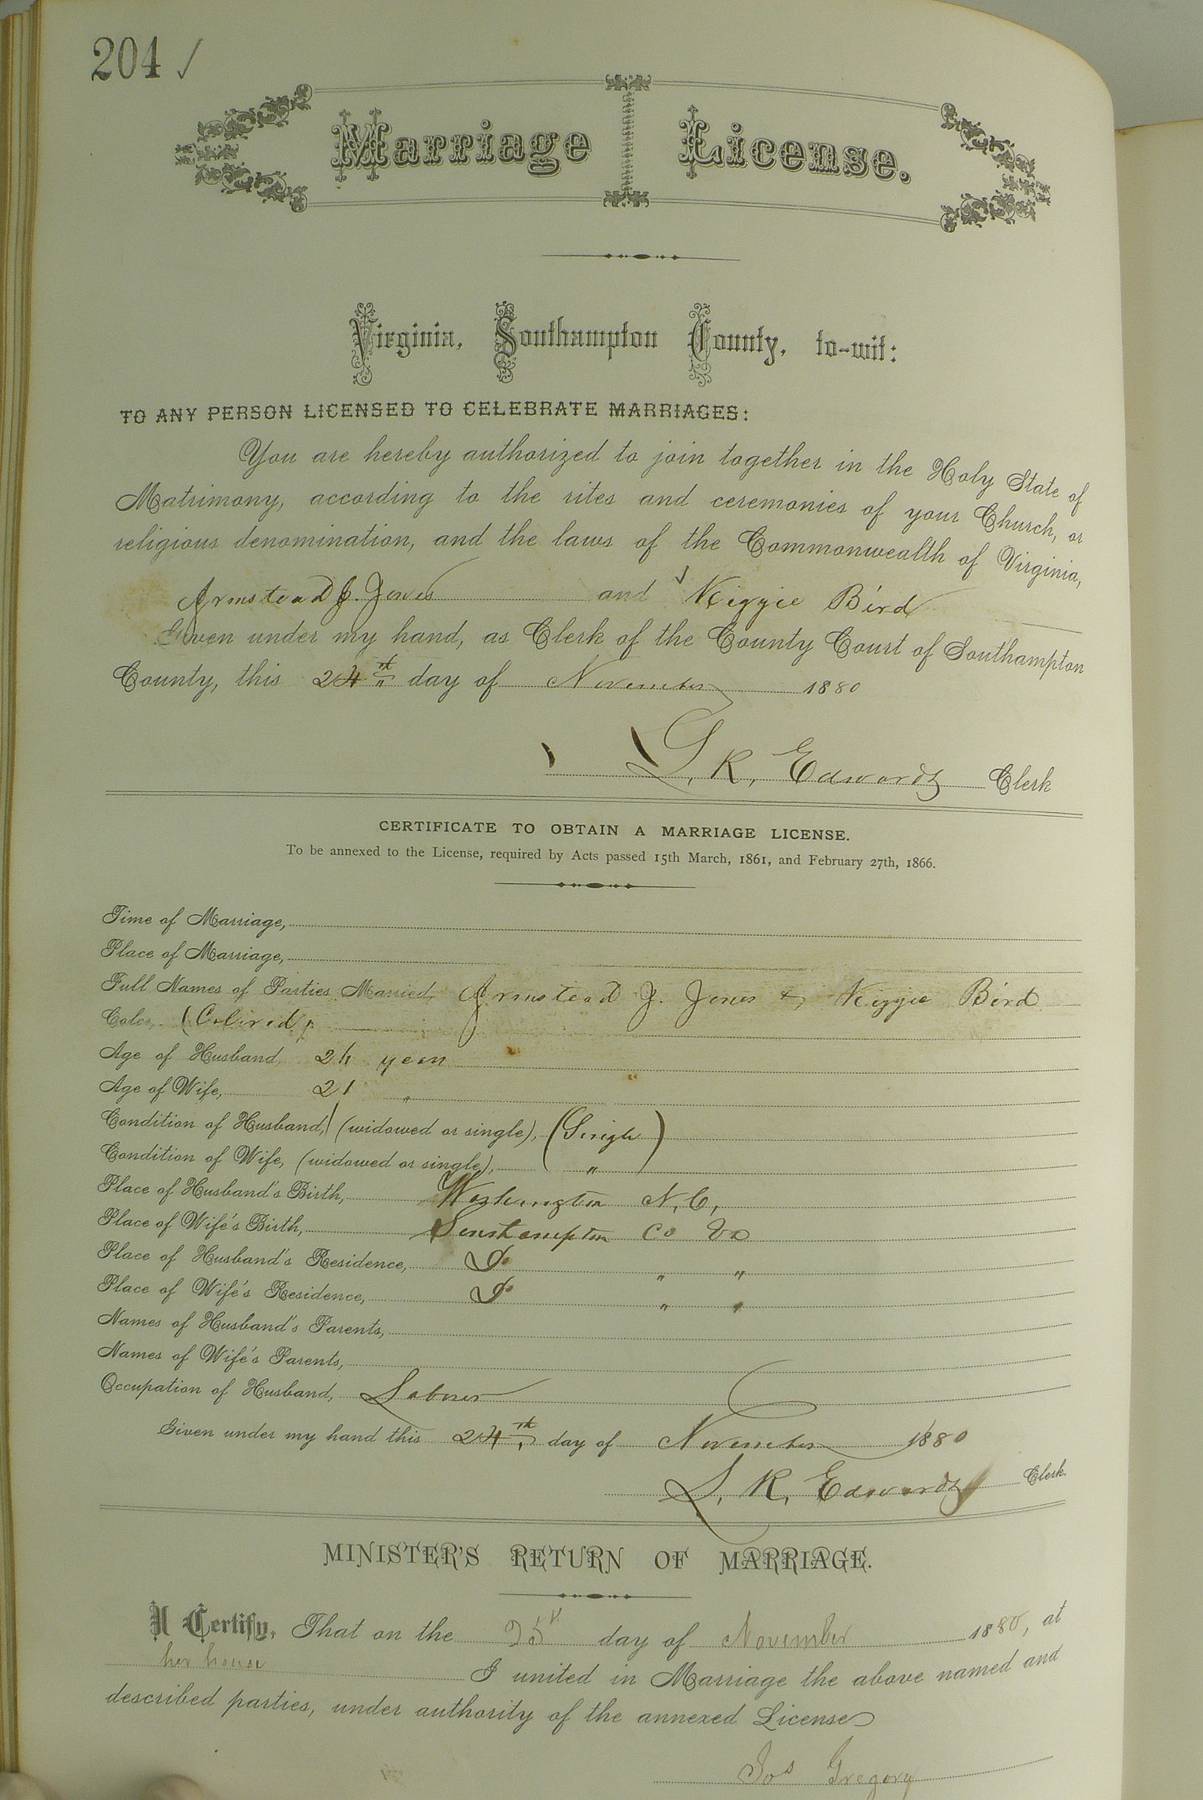 204 ✓
Marriage License.
Virginia, Southampton County, to-wit:
TO ANY PERSON LICENSED TO CELEBRATE MARRIAGES:
You are hereby authorized to join together in the Holy State of
Matrimony, according to the rites and ceremonies of your Church, or
religious denomination, and the laws of the Commonwealth of Virginia,
Armstead J. Jones and Kizzie Bird
Given under my hand, as Clerk of the County Court of Southampton
County, this 24th day of November 1880
L. R. Edwards Clerk
CERTIFICATE TO OBTAIN A MARRIAGE LICENSE.
To be annexed to the License, required by Acts passed 15th March, 1861, and February 27th, 1866.
Time of Marriage,
Place of Marriage,
Full Names of Parties Married, Armstead J. Jones & Kizzie Bird
Color, (Colored)
Age of Husband, years
Age of Wife, 21 "
Condition of Husband, (widowed or single), (Single)
Condition of Wife, (widowed or single), "
Place of Husband's Birth, Washington N.C,
Place of Wife's Birth, Southampton Co Va
Place of Husband's Residence, Do " "
Place of Wife's Residence, Do " "
Names of Husband's Parents,
Names of Wife's Parents,
Occupation of Husband, Laborer
Given under my hand this 24th day of November 1880
L. R. Edwards Clerk.
MINISTER'S RETURN OF MARRIAGE.
I Certify, That on the 25th day of November 1880, at
her house I united in Marriage the above named and
described parties, under authority of the annexed License
Jos Gregory